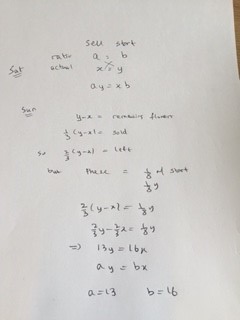 sell start
ratio a : b
Sat actual x : y
ay = xb
Sun
y-x = remaining flowers
1/3 (y-x) = sold
so 2/3 (y-x) = left
but these = 1/8 of start
1/8 y
2/3 (y-x) = 1/8 y
2/3 y - 2/3 x = 1/8 y
=> 13y = 16x
ay = bx
a = 13 b = 16